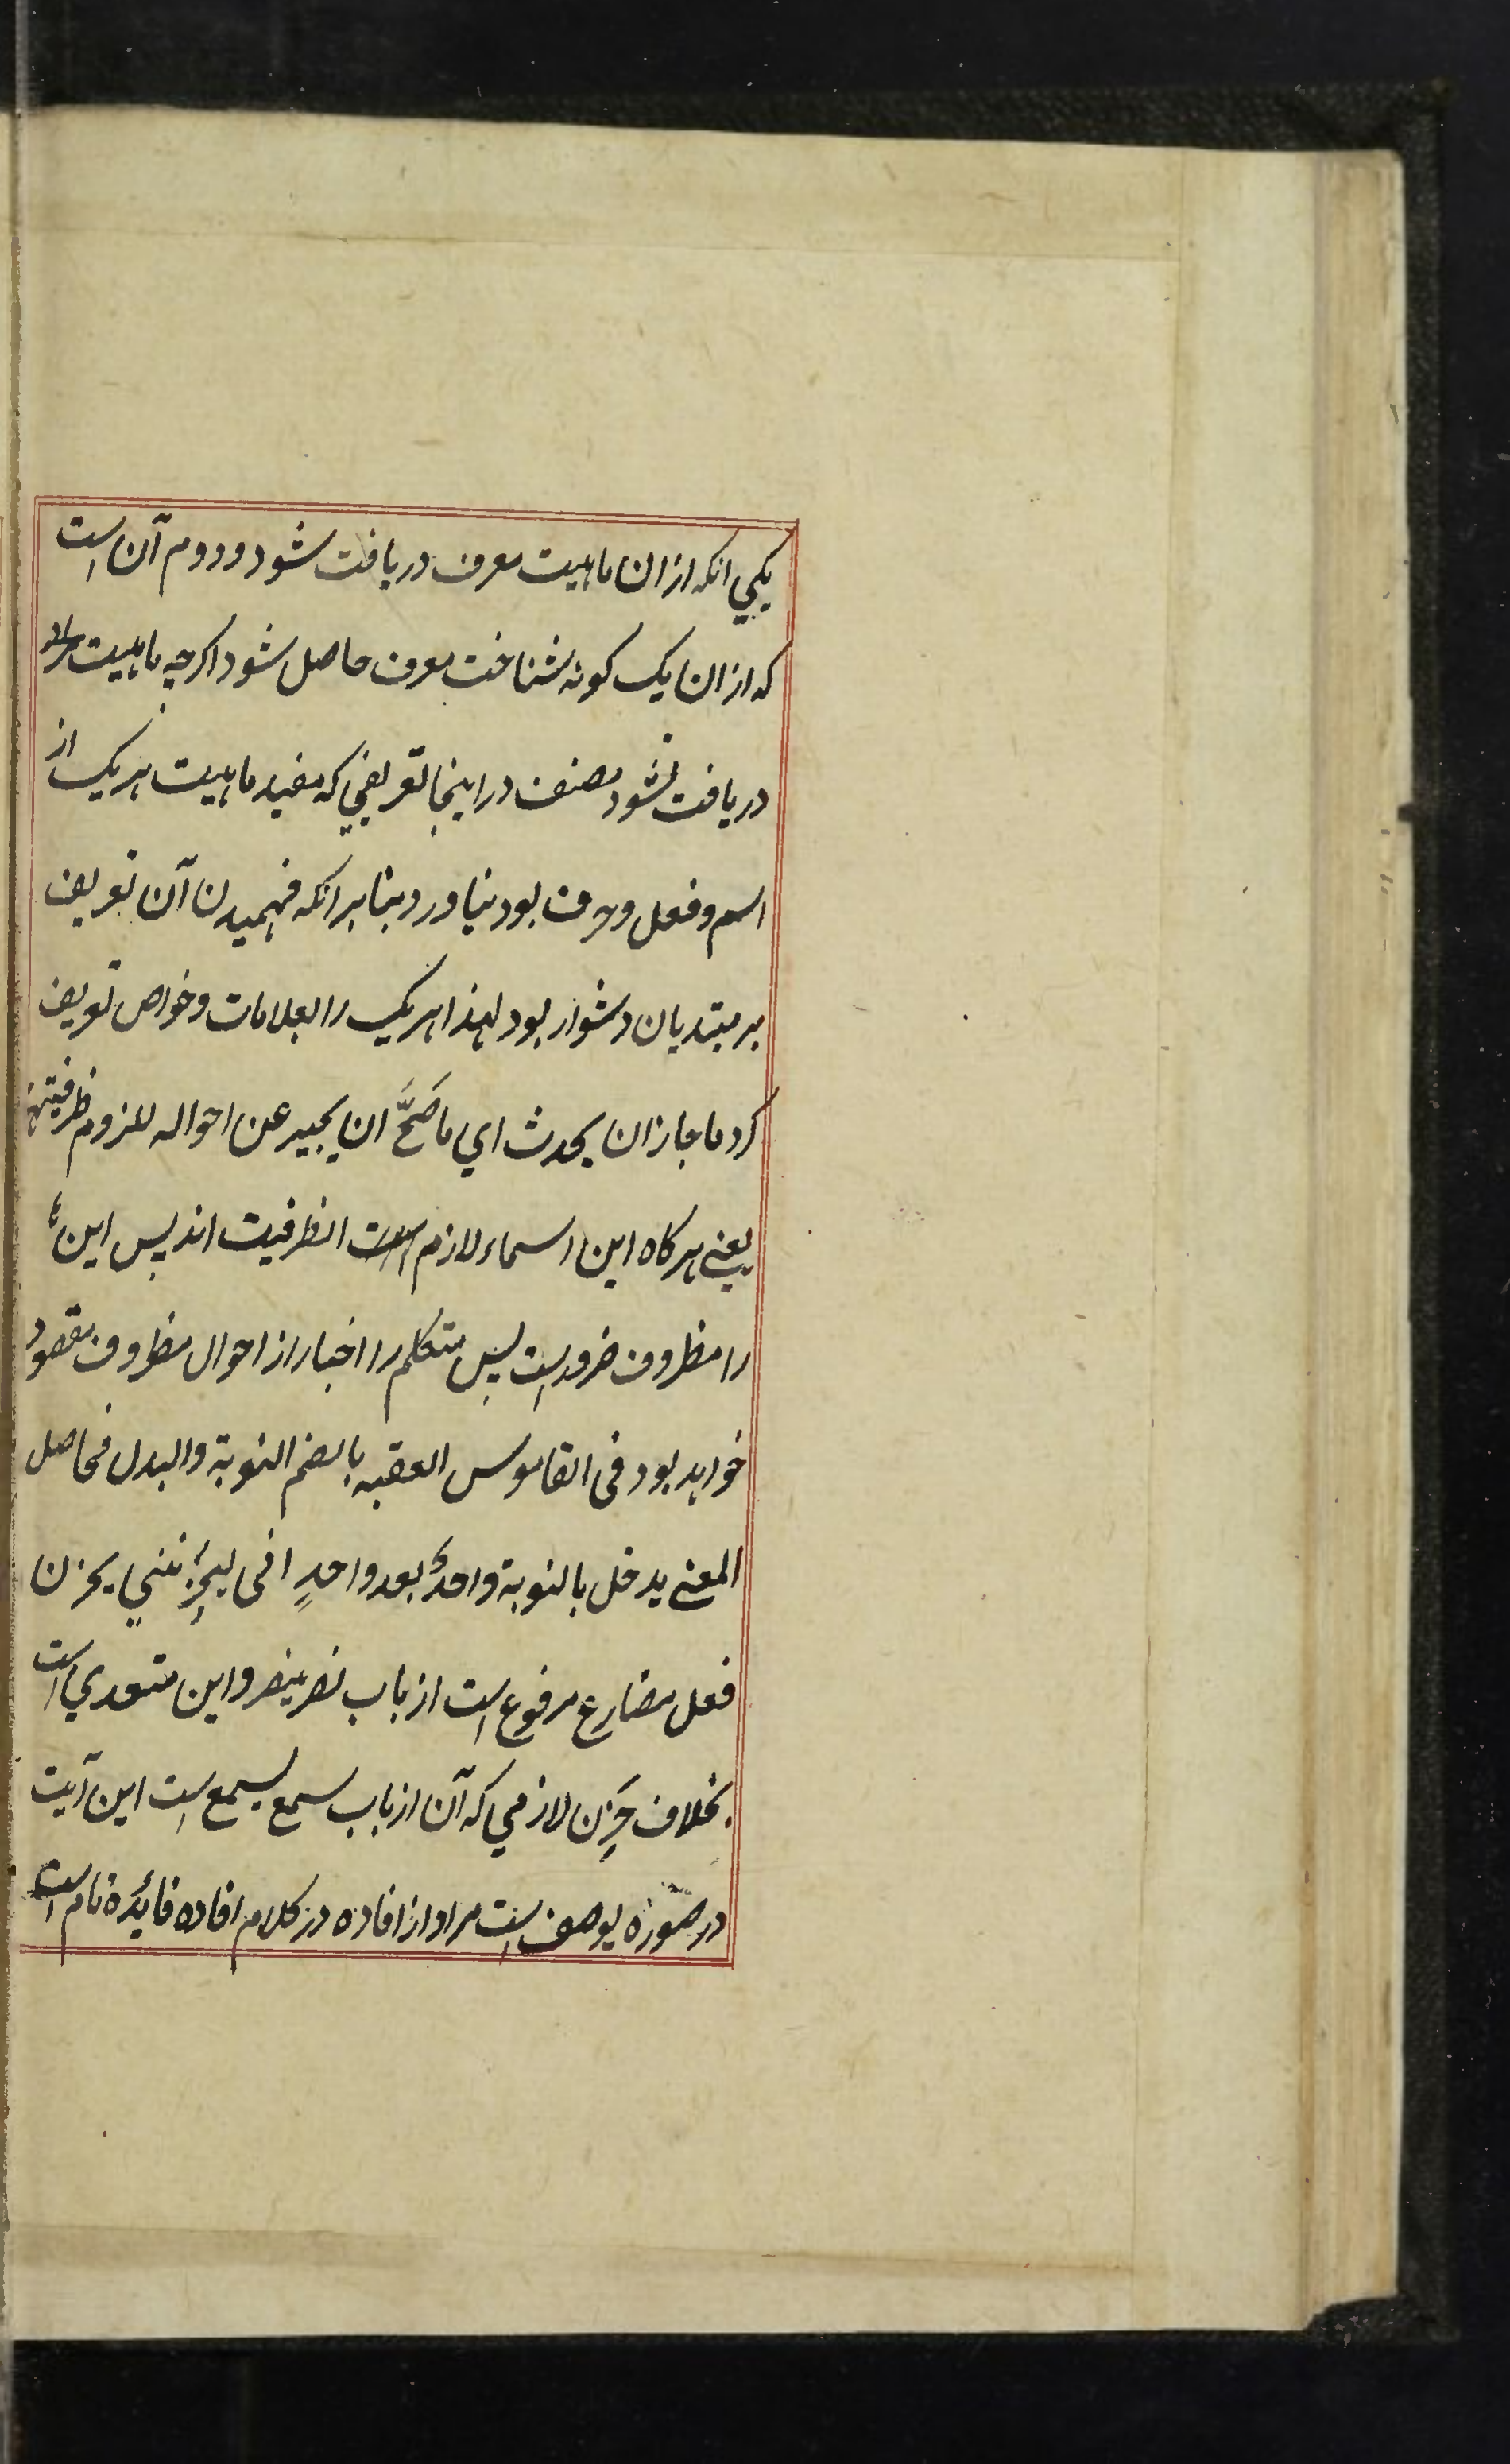 یکی انکه ازان ماهیت معرف دریافت شود و دوم آن است
که ازان یک کونه شناخت معرف حاصل شود اکرچه ماهیت
دریافت نشود مصنف در اینجا تعریفی که مفید ماهیت هر یک از
اسم و فعل و حرف بود نیاورد بنا بر انکه فهمیدن آن تعریف
بر مبتدیان دشوار بود لهذا هر یک را بعلامات و خواص تعریف
کرد ما جاز ان یحدث ای ما صَحَّ ان یجیر عن احواله للزوم ظرفیتها
یعنی هر کاه این اسماء لازم الظرفیت اند پس این
را مظروف ضرورست پس متکلم را اخبار از احوال مظروف مقصود
خواهد بود فی القاموس العقبه بالضم النوبة والبدل فحاصل
المعنی یدخل بالنوبة واحدٌ بعد واحدٍ انی لیحزننی یحزن
فعل مضارع مرفوع است از باب نصر ینصر و این متعدی است
بخلاف حَزِن لازمی که آن از باب سمع یسمع است این آیت
در صورة یوسف است مراد از افاده در کلام افاده فائده تام است